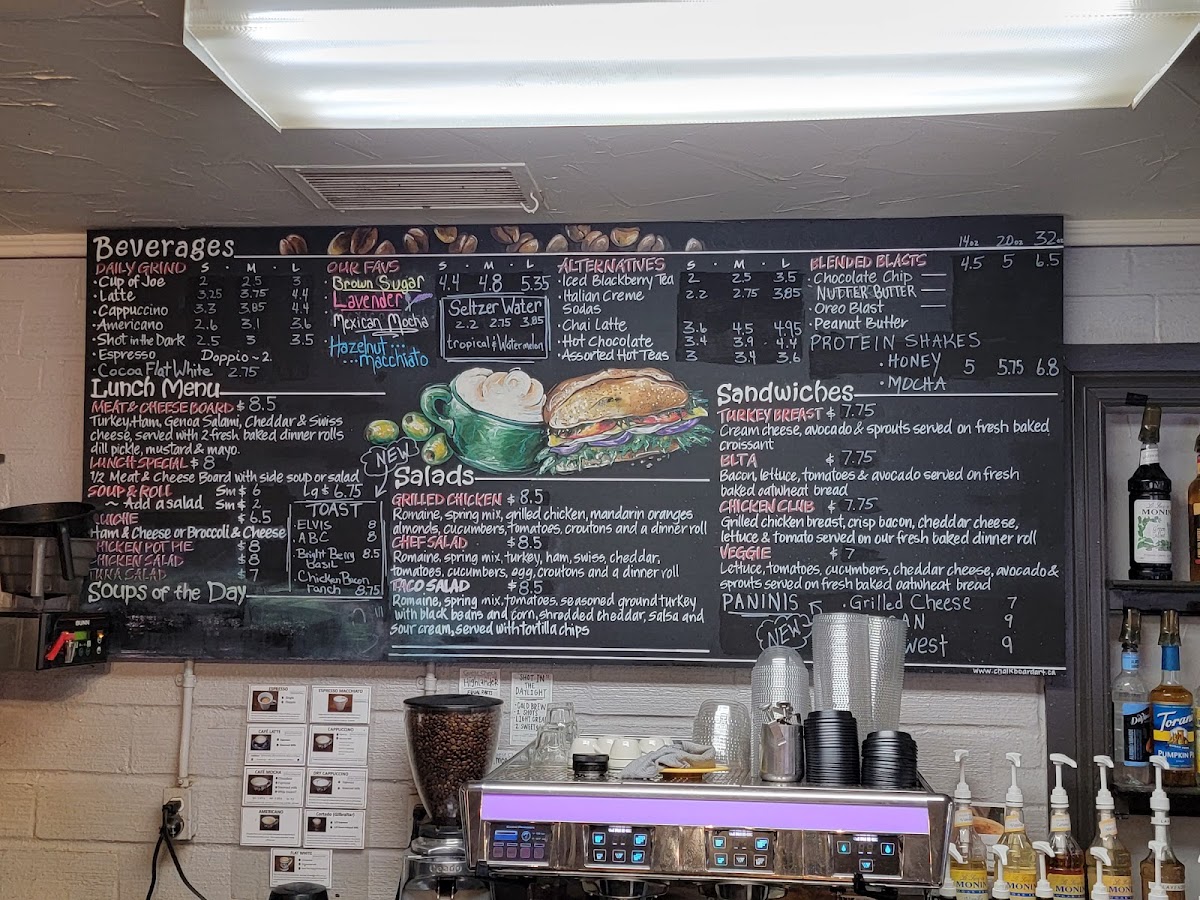 Beverages
DAILY GRIND S · M · L
· Cup of Joe 2 2.5 3
· Latte 3.25 3.75 4.4
· Cappuccino 3.3 3.85 4.4
· Americano 2.6 3.1 3.6
· Shot in the Dark 2.5 3 3.5
· Espresso Doppio ~ 2.
· Cocoa Flat White 2.75
OUR FAVS S · M · L
Brown Sugar 4.4 4.8 5.35
Lavender
Mexican Mocha
Hazelnut...
...macchiato
Seltzer Water
2.2 2.75 3.85
tropical & Watermelon
ALTERNATIVES S · M · L
· Iced Blackberry Tea 2 2.5 3.5
· Italian Creme 2.2 2.75 3.85
Sodas
· Chai Latte 3.6 4.5 4.95
· Hot Chocolate 3.4 3.9 4.4
· Assorted Hot Teas 3 3.4 3.6
14oz 20oz 32oz
BLENDED BLASTS 4.5 5 6.5
· Chocolate Chip
NUTTER BUTTER
· Oreo Blast
· Peanut Butter
PROTEIN SHAKES
· HONEY 5 5.75 6.8
· MOCHA
Lunch Menu
MEAT & CHEESE BOARD $ 8.5
Turkey, Ham, Genoa Salami, Cheddar & Swiss
cheese, served with 2 fresh baked dinner rolls
dill pickle, mustard & mayo.
LUNCH SPECIAL $ 8
1/2 Meat & Cheese Board with side soup or salad
SOUP & ROLL Sm $ 6 Lg $ 6.75
~ Add a salad Sm $ 2
QUICHE $ 6.5
Ham & Cheese or Broccoli & Cheese
CHICKEN POT PIE $ 8
CHICKEN SALAD $ 8
TUNA SALAD $ 7
Soups of the Day
NEW
TOAST
· ELVIS 8
· ABC 8
· Bright Berry 8.5
Basil
· Chicken Bacon
ranch 8.75
Salads
GRILLED CHICKEN $ 8.5
Romaine, spring mix, grilled chicken, mandarin oranges
almonds, cucumbers, tomatoes, croutons and a dinner roll
CHEF SALAD $ 8.5
Romaine, spring mix, turkey, ham, swiss, cheddar,
tomatoes, cucumbers, egg, croutons and a dinner roll
TACO SALAD $ 8.5
Romaine, spring mix, tomatoes, seasoned ground turkey
with black beans and corn, shredded cheddar, salsa and
sour cream, served with tortilla chips
Sandwiches
TURKEY BREAST $ 7.75
Cream cheese, avocado & sprouts served on fresh baked
croissant
BLTA $ 7.75
Bacon, lettuce, tomatoes & avocado served on fresh
baked oatwheat bread
CHICKEN CLUB $ 7.75
Grilled chicken breast, crisp bacon, cheddar cheese,
lettuce & tomato served on our fresh baked dinner roll
VEGGIE $ 7
Lettuce, tomatoes, cucumbers, cheddar cheese, avocado &
sprouts served on fresh baked oatwheat bread
PANINIS · Grilled Cheese 7
AN 9
NEW west 9
www.chalkboardart.ca
BUNN
ESPRESSO
ESPRESSO MACCHIATO
CAFÉ LATTE
CAPPUCCINO
CAFÉ MOCHA
DRY CAPPUCCINO
AMERICANO
Cortado (Gibraltar)
FLAT WHITE
Highlander
SHOT IN
THE
DAYLIGHT
COLD BREW
2 SHOTS
MONIN
Torani
PUMPKIN PIE
MONIN
MONIN
MONIN
MONIN